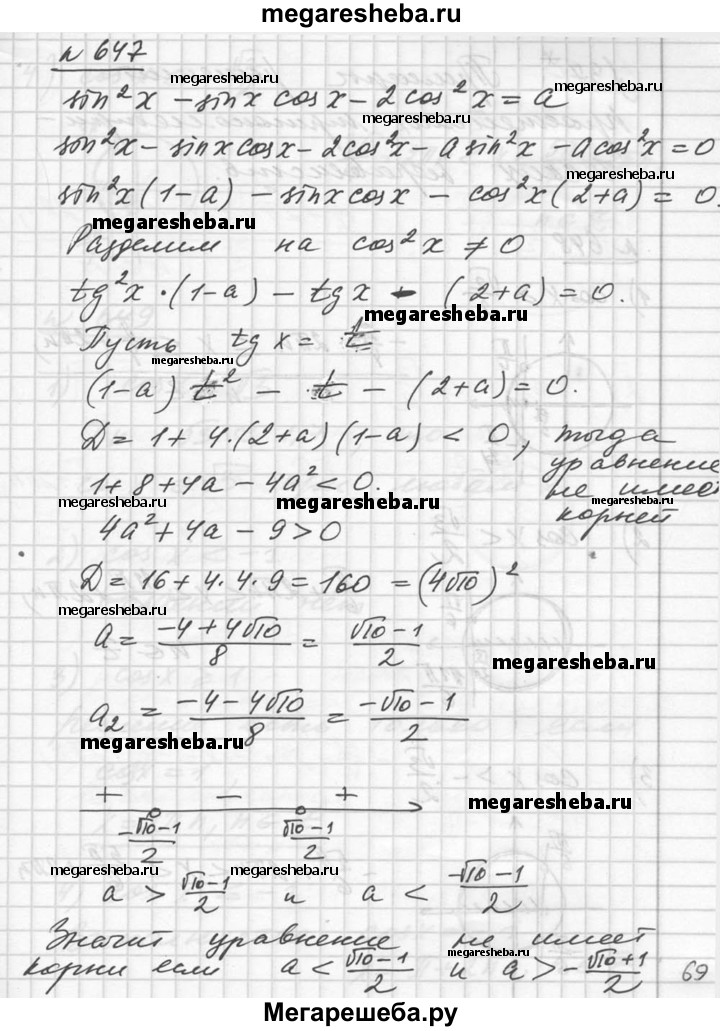 megaresheba.ru
n 647
megaresheba.ru
sin²x - sinx cosx - 2cos²x = a
megaresheba.ru
sin²x - sinxcosx - 2cos²x - a sin²x - acos²x = 0
megaresheba.ru
sin²x(1-a) - sinxcosx - cos²x(2+a) = 0.
megaresheba.ru
Разделим на cos²x ≠ 0
tg²x · (1-a) - tgx - (2+a) = 0.
megaresheba.ru
Пусть tg x = t
megaresheba.ru
(1-a) t² - t - (2+a) = 0.
D = 1 + 4·(2+a)(1-a) < 0, тогда
уравнение
не имеет
корней
1 + 8 + 4a - 4a² < 0.
megaresheba.ru megaresheba.ru megaresheba.ru
4a² + 4a - 9 > 0
D = 16 + 4·4·9 = 160 = (4√10)²
megaresheba.ru
a = (-4+4√10)/8 = (√10-1)/2
megaresheba.ru
a₂ = (-4-4√10)/8 = (-√10-1)/2
megaresheba.ru
+ - +
megaresheba.ru
(-√10-1)/2 (√10-1)/2
megaresheba.ru megaresheba.ru
a > (√10-1)/2 и a < (-√10-1)/2
Значит уравнение не имеет
корни если a < (√10-1)/2 и a > -(√10+1)/2
megaresheba.ru megaresheba.ru
69
Мегарешеба.ру